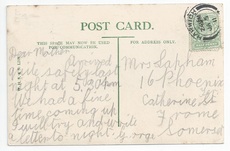 POST CARD.
THIS SPACE MAY NOW BE USED
FOR COMMUNICATION.
FOR ADDRESS ONLY.
Dear Mother
Arrived
quite safe last
night at 5.30pm
We had a fine
time coming up
will try and write
a letter to night
Mrs Lapham
16 Phoenix
Catherine St
Frome
Somerset